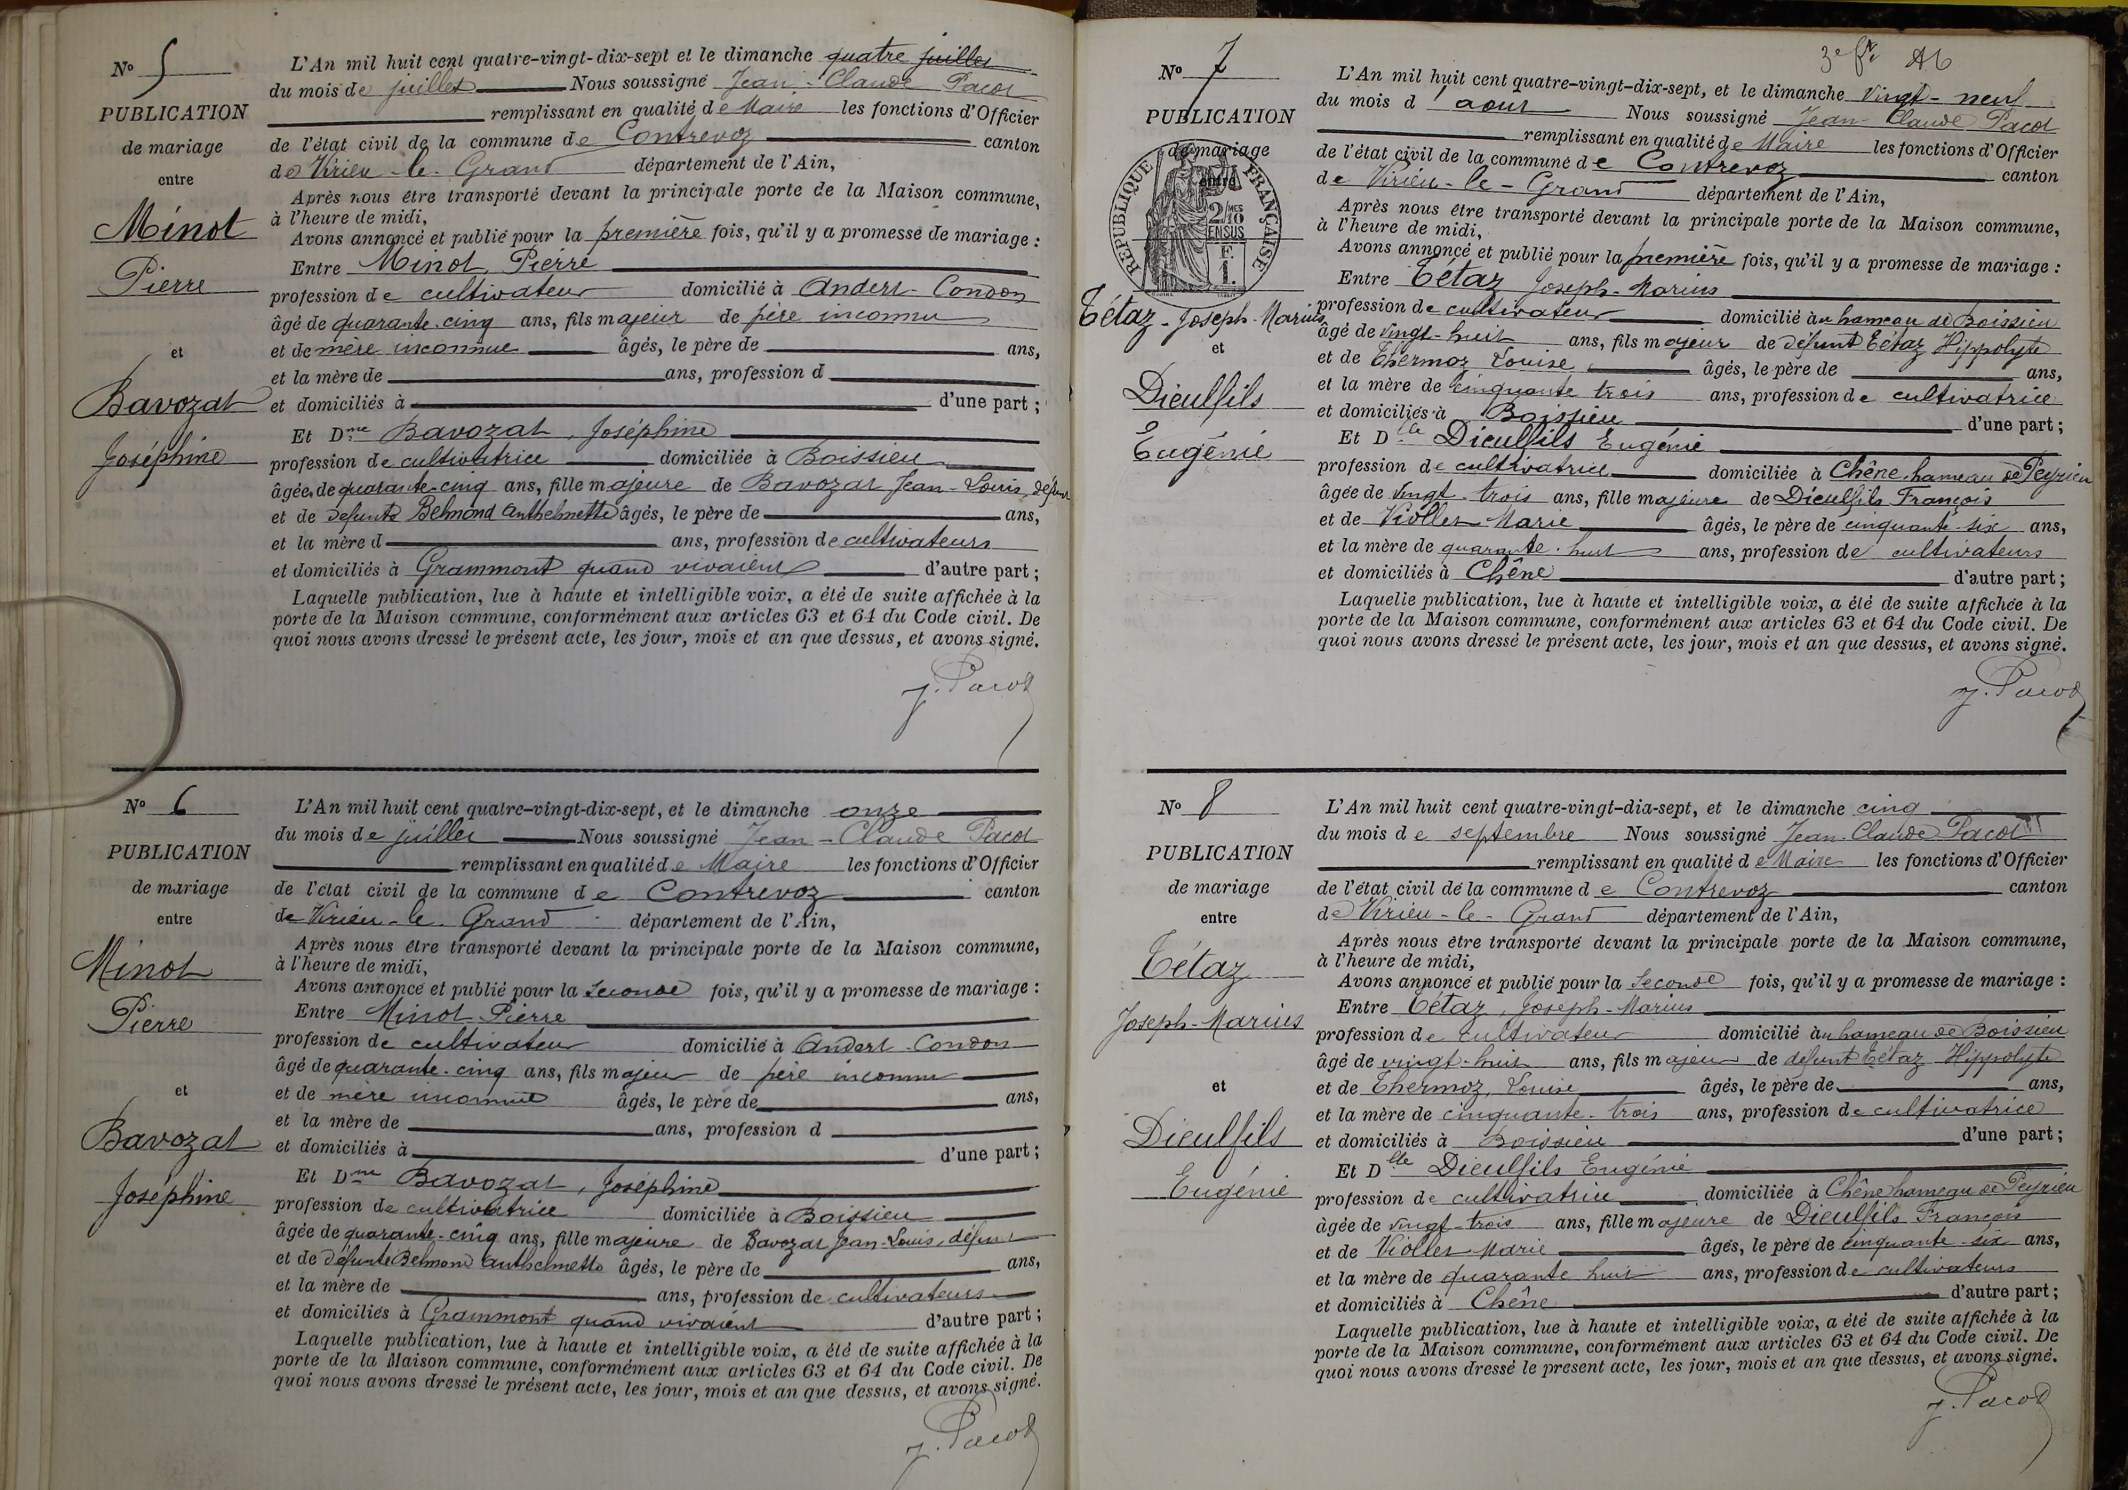 N° 5
PUBLICATION
de mariage
entre
Minot
Pierre
et
Bavozat
Joséphine
L'An mil huit cent quatre-vingt-dix-sept et le dimanche quatre juillet
du mois de juillet Nous soussigné Jean-Claude Pacot
remplissant en qualité de Maire les fonctions d'Officier
de l'état civil de la commune de Contrevoz canton
de Virieu-le-Grand département de l'Ain,
Après nous être transporté devant la principale porte de la Maison commune,
à l'heure de midi,
Avons annoncé et publié pour la première fois, qu'il y a promesse de mariage :
Entre Minot, Pierre
profession de cultivateur domicilié à Andert-Condon
âgé de quarante-cinq ans, fils majeur de père inconnu
et de mère inconnue âgés, le père de ans,
et la mère de ans, profession d
et domiciliés à d'une part ;
Et Dme Bavozat, Joséphine
profession de cultivatrice domiciliée à Boissieu
âgée de quarante-cinq ans, fille majeure de Bavozat Jean-Louis, défunt
et de defunte Belmond Anthelmette âgés, le père de ans,
et la mère d ans, profession de cultivateurs
et domiciliés à Grammont quand vivaient d'autre part ;
Laquelle publication, lue à haute et intelligible voix, a été de suite affichée à la
porte de la Maison commune, conformément aux articles 63 et 64 du Code civil. De
quoi nous avons dressé le présent acte, les jour, mois et an que dessus, et avons signé.
J. Pacot
N° 6
PUBLICATION
de mariage
entre
Minot
Pierre
et
Bavozat
Joséphine
L'An mil huit cent quatre-vingt-dix-sept, et le dimanche onze
du mois de juillet Nous soussigné Jean-Claude Pacot
remplissant en qualité de Maire les fonctions d'Officier
de l'état civil de la commune de Contrevoz canton
de Virieu-le-Grand département de l'Ain,
Après nous être transporté devant la principale porte de la Maison commune,
à l'heure de midi,
Avons annoncé et publié pour la seconde fois, qu'il y a promesse de mariage :
Entre Minot Pierre
profession de cultivateur domicilié à Andert-Condon
âgé de quarante-cinq ans, fils majeur de père inconnu
et de mère inconnue âgés, le père de ans,
et la mère de ans, profession d
et domiciliés à d'une part ;
Et Dme Bavozat, Joséphine
profession de cultivatrice domiciliée à Boissieu
âgée de quarante-cinq ans, fille majeure de Bavozat Jean-Louis, défunt
et de défunte Belmond Anthelmette âgés, le père de ans,
et la mère de ans, profession de cultivateurs
et domiciliés à Grammont quand vivaient d'autre part ;
Laquelle publication, lue à haute et intelligible voix, a été de suite affichée à la
porte de la Maison commune, conformément aux articles 63 et 64 du Code civil. De
quoi nous avons dressé le présent acte, les jour, mois et an que dessus, et avons signé.
J. Pacot
N° 7
PUBLICATION
de mariage
entre
RÉPUBLIQUE FRANÇAISE
2/10 MES
EN SUS
F.
1.
Tétaz-Joseph-Marius
et
Dieulfils
Eugénie
L'An mil huit cent quatre-vingt-dix-sept, et le dimanche vingt-neuf
du mois d'août Nous soussigné Jean-Claude Pacot
remplissant en qualité de Maire les fonctions d'Officier
de l'état civil de la commune de Contrevoz canton
de Virieu-le-Grand département de l'Ain,
Après nous être transporté devant la principale porte de la Maison commune,
à l'heure de midi,
Avons annoncé et publié pour la première fois, qu'il y a promesse de mariage :
Entre Tétaz Joseph-Marius
profession de cultivateur domicilié au hameau de Boissieu
âgé de vingt-huit ans, fils majeur de défunt Tétaz Hippolyte
et de Thermoz Louise âgés, le père de ans,
et la mère de cinquante trois ans, profession de cultivatrice
et domiciliés à Boissieu d'une part ;
Et Dlle Dieulfils Eugénie
profession de cultivatrice domiciliée à Chêne, hameau de Peyrieu
âgée de vingt-trois ans, fille majeure de Dieulfils François
et de Viollet Marie âgés, le père de cinquante-six ans,
et la mère de quarante-huit ans, profession de cultivateurs
et domiciliés à Chêne d'autre part ;
Laquelle publication, lue à haute et intelligible voix, a été de suite affichée à la
porte de la Maison commune, conformément aux articles 63 et 64 du Code civil. De
quoi nous avons dressé le présent acte, les jour, mois et an que dessus, et avons signé.
J. Pacot
N° 8
PUBLICATION
de mariage
entre
Tétaz
Joseph-Marius
et
Dieulfils
Eugénie
L'An mil huit cent quatre-vingt-dix-sept, et le dimanche cinq
du mois de septembre Nous soussigné Jean-Claude Pacot
remplissant en qualité de Maire les fonctions d'Officier
de l'état civil de la commune de Contrevoz canton
de Virieu-le-Grand département de l'Ain,
Après nous être transporté devant la principale porte de la Maison commune,
à l'heure de midi,
Avons annoncé et publié pour la seconde fois, qu'il y a promesse de mariage :
Entre Tétaz, Joseph-Marius
profession de cultivateur domicilié au hameau de Boissieu
âgé de vingt-huit ans, fils majeur de défunt Tétaz Hippolyte
et de Thermoz, Louise âgés, le père de ans,
et la mère de cinquante-trois ans, profession de cultivatrice
et domiciliés à Boissieu d'une part ;
Et Dlle Dieulfils Eugénie
profession de cultivatrice domiciliée à Chêne hameau de Peyrieu
âgée de vingt-trois ans, fille majeure de Dieulfils François
et de Viollet Marie âgés, le père de cinquante-six ans,
et la mère de quarante huit ans, profession de cultivateurs
et domiciliés à Chêne d'autre part ;
Laquelle publication, lue à haute et intelligible voix, a été de suite affichée à la
porte de la Maison commune, conformément aux articles 63 et 64 du Code civil. De
quoi nous avons dressé le présent acte, les jour, mois et an que dessus, et avons signé.
J. Pacot